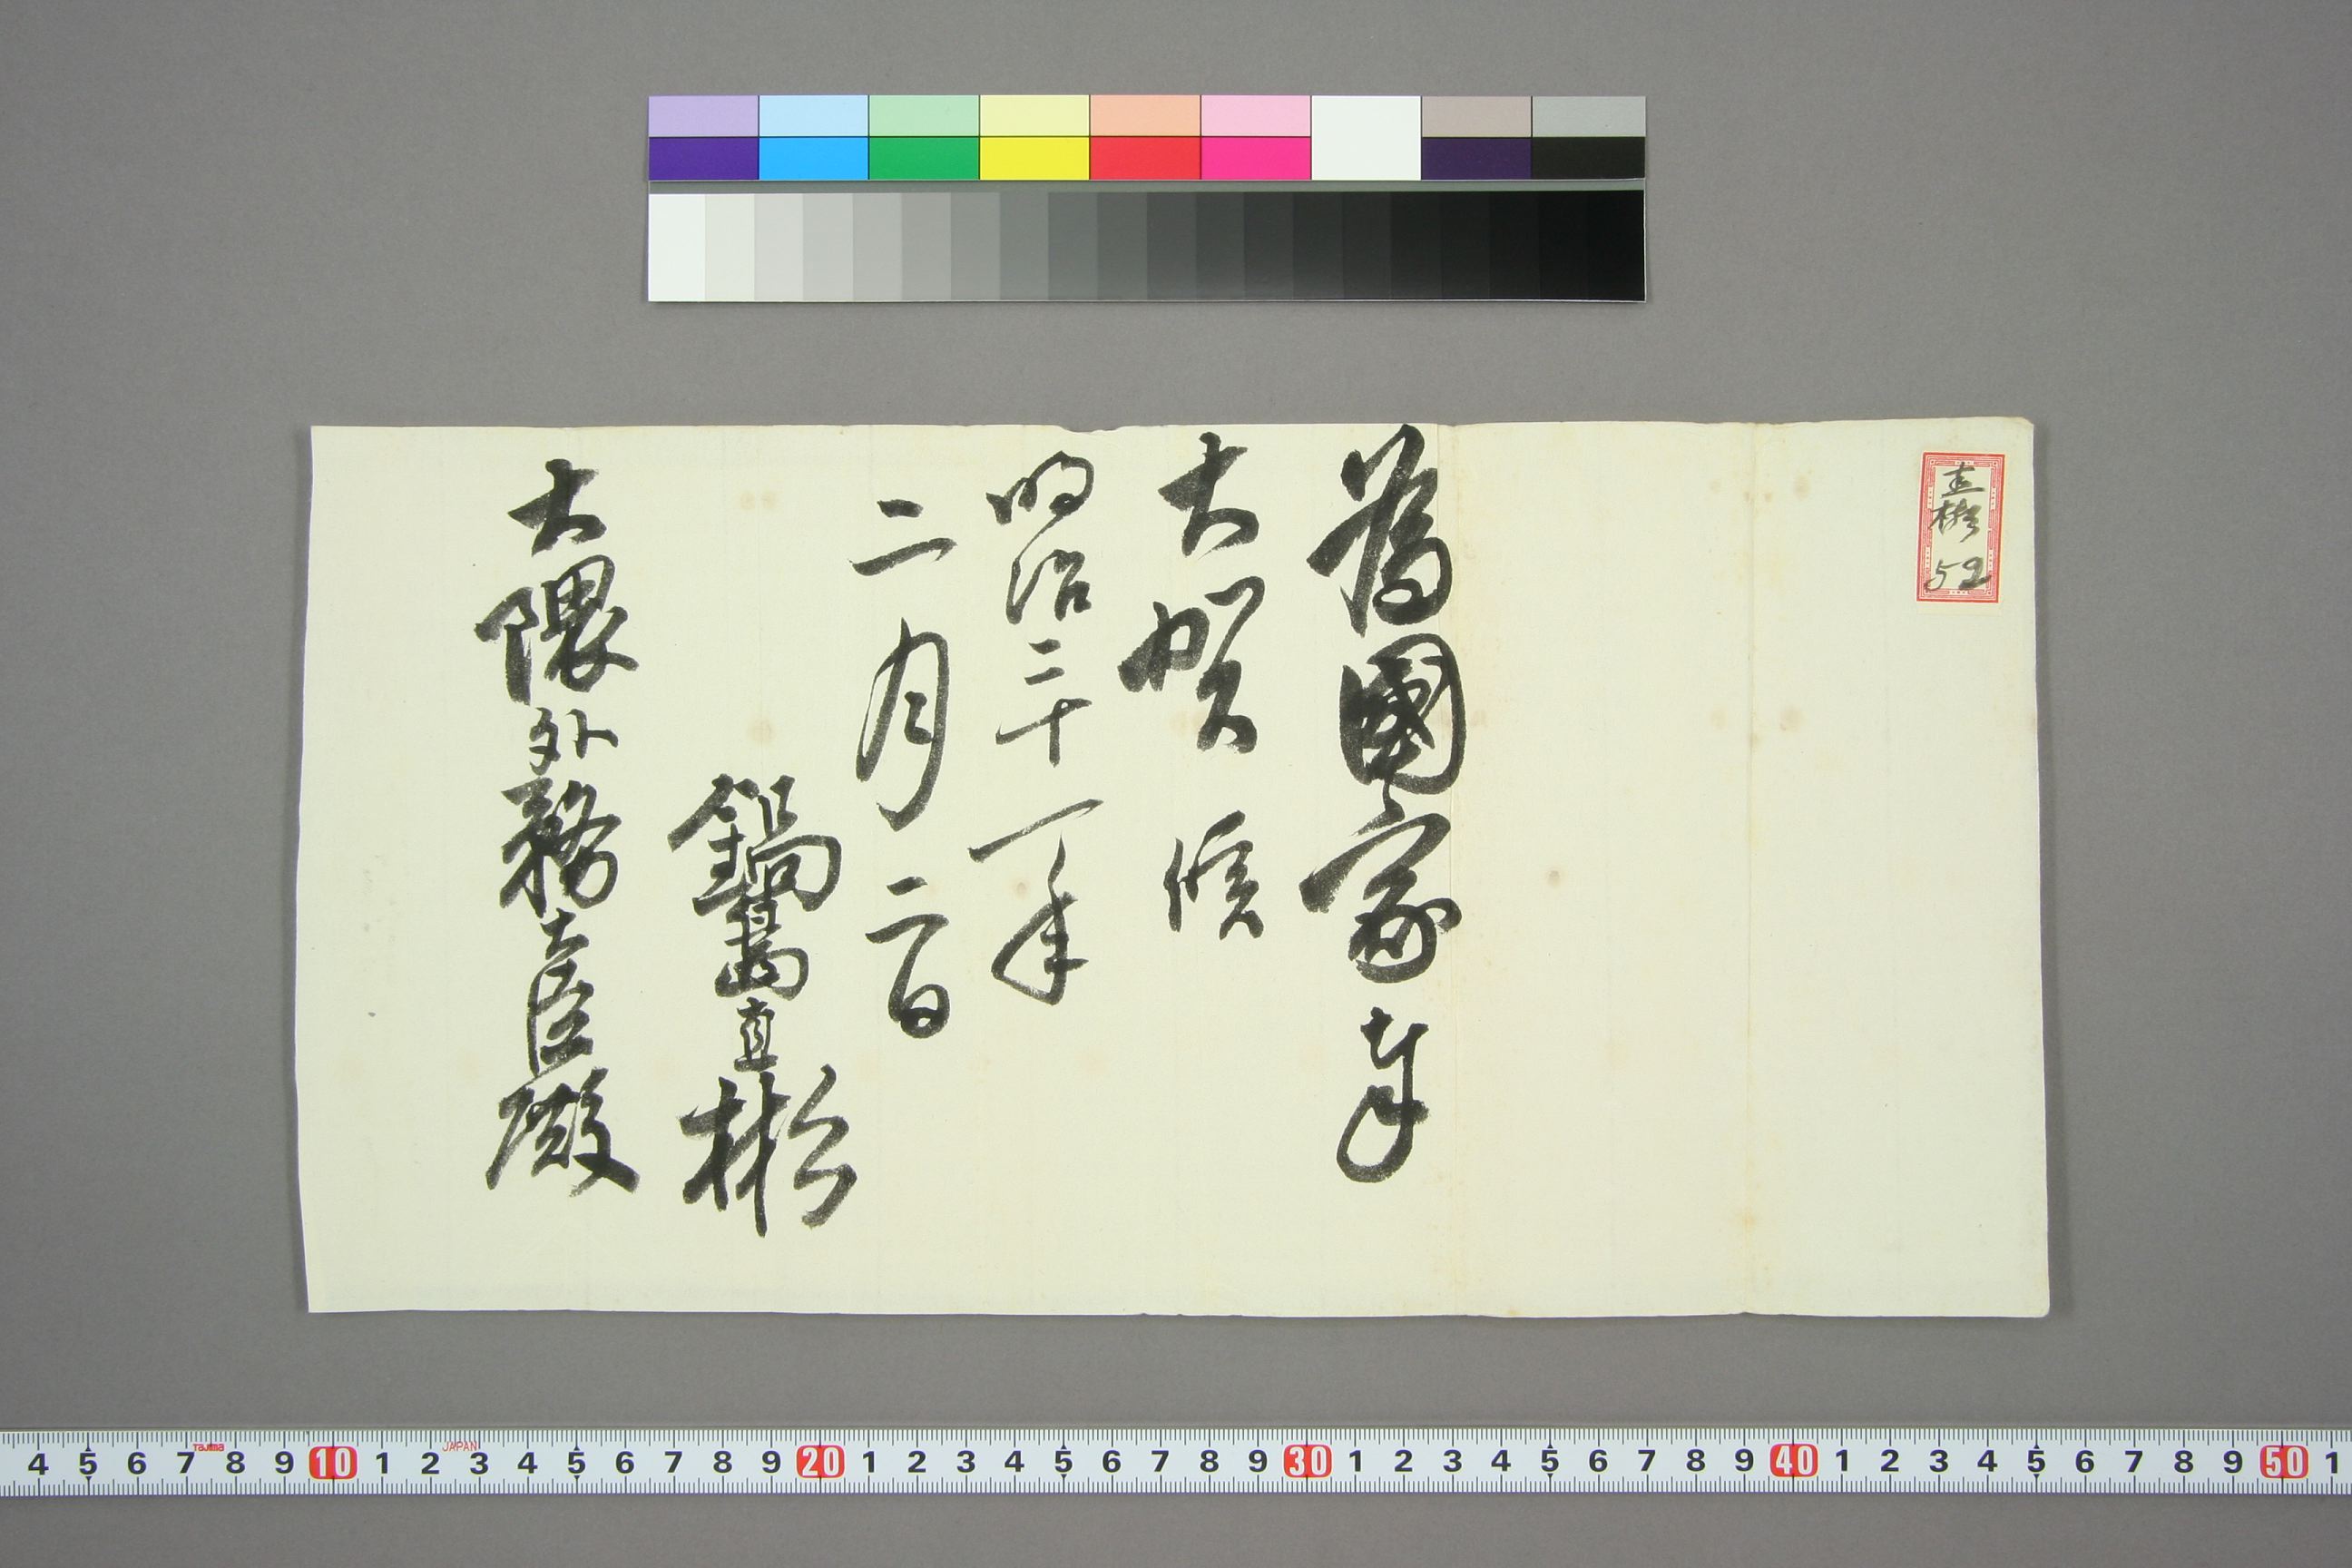 直彬
52
為國家奉
大賀候
明治二十一年
二月二日
鍋島直彬
大隈外務大臣殿
4 5 6 7 8 9 10 1 2 3 4 5 6 7 8 9 20 1 2 3 4 5 6 7 8 9 30 1 2 3 4 5 6 7 8 9 40 1 2 3 4 5 6 7 8 9 50 1
Tajima JAPAN